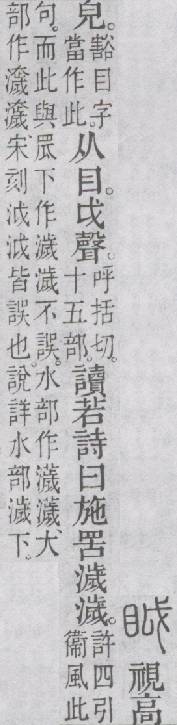 眓 視高
皃。豁目字當作此。从目。戉聲。呼括切。十五部。讀若詩曰施罟濊濊。許四引衞風此
句。而此與罛下作濊濊不誤。水部作瀎瀎、大
部作瀎瀎宋刻泧泧皆誤也。說詳水部濊下。